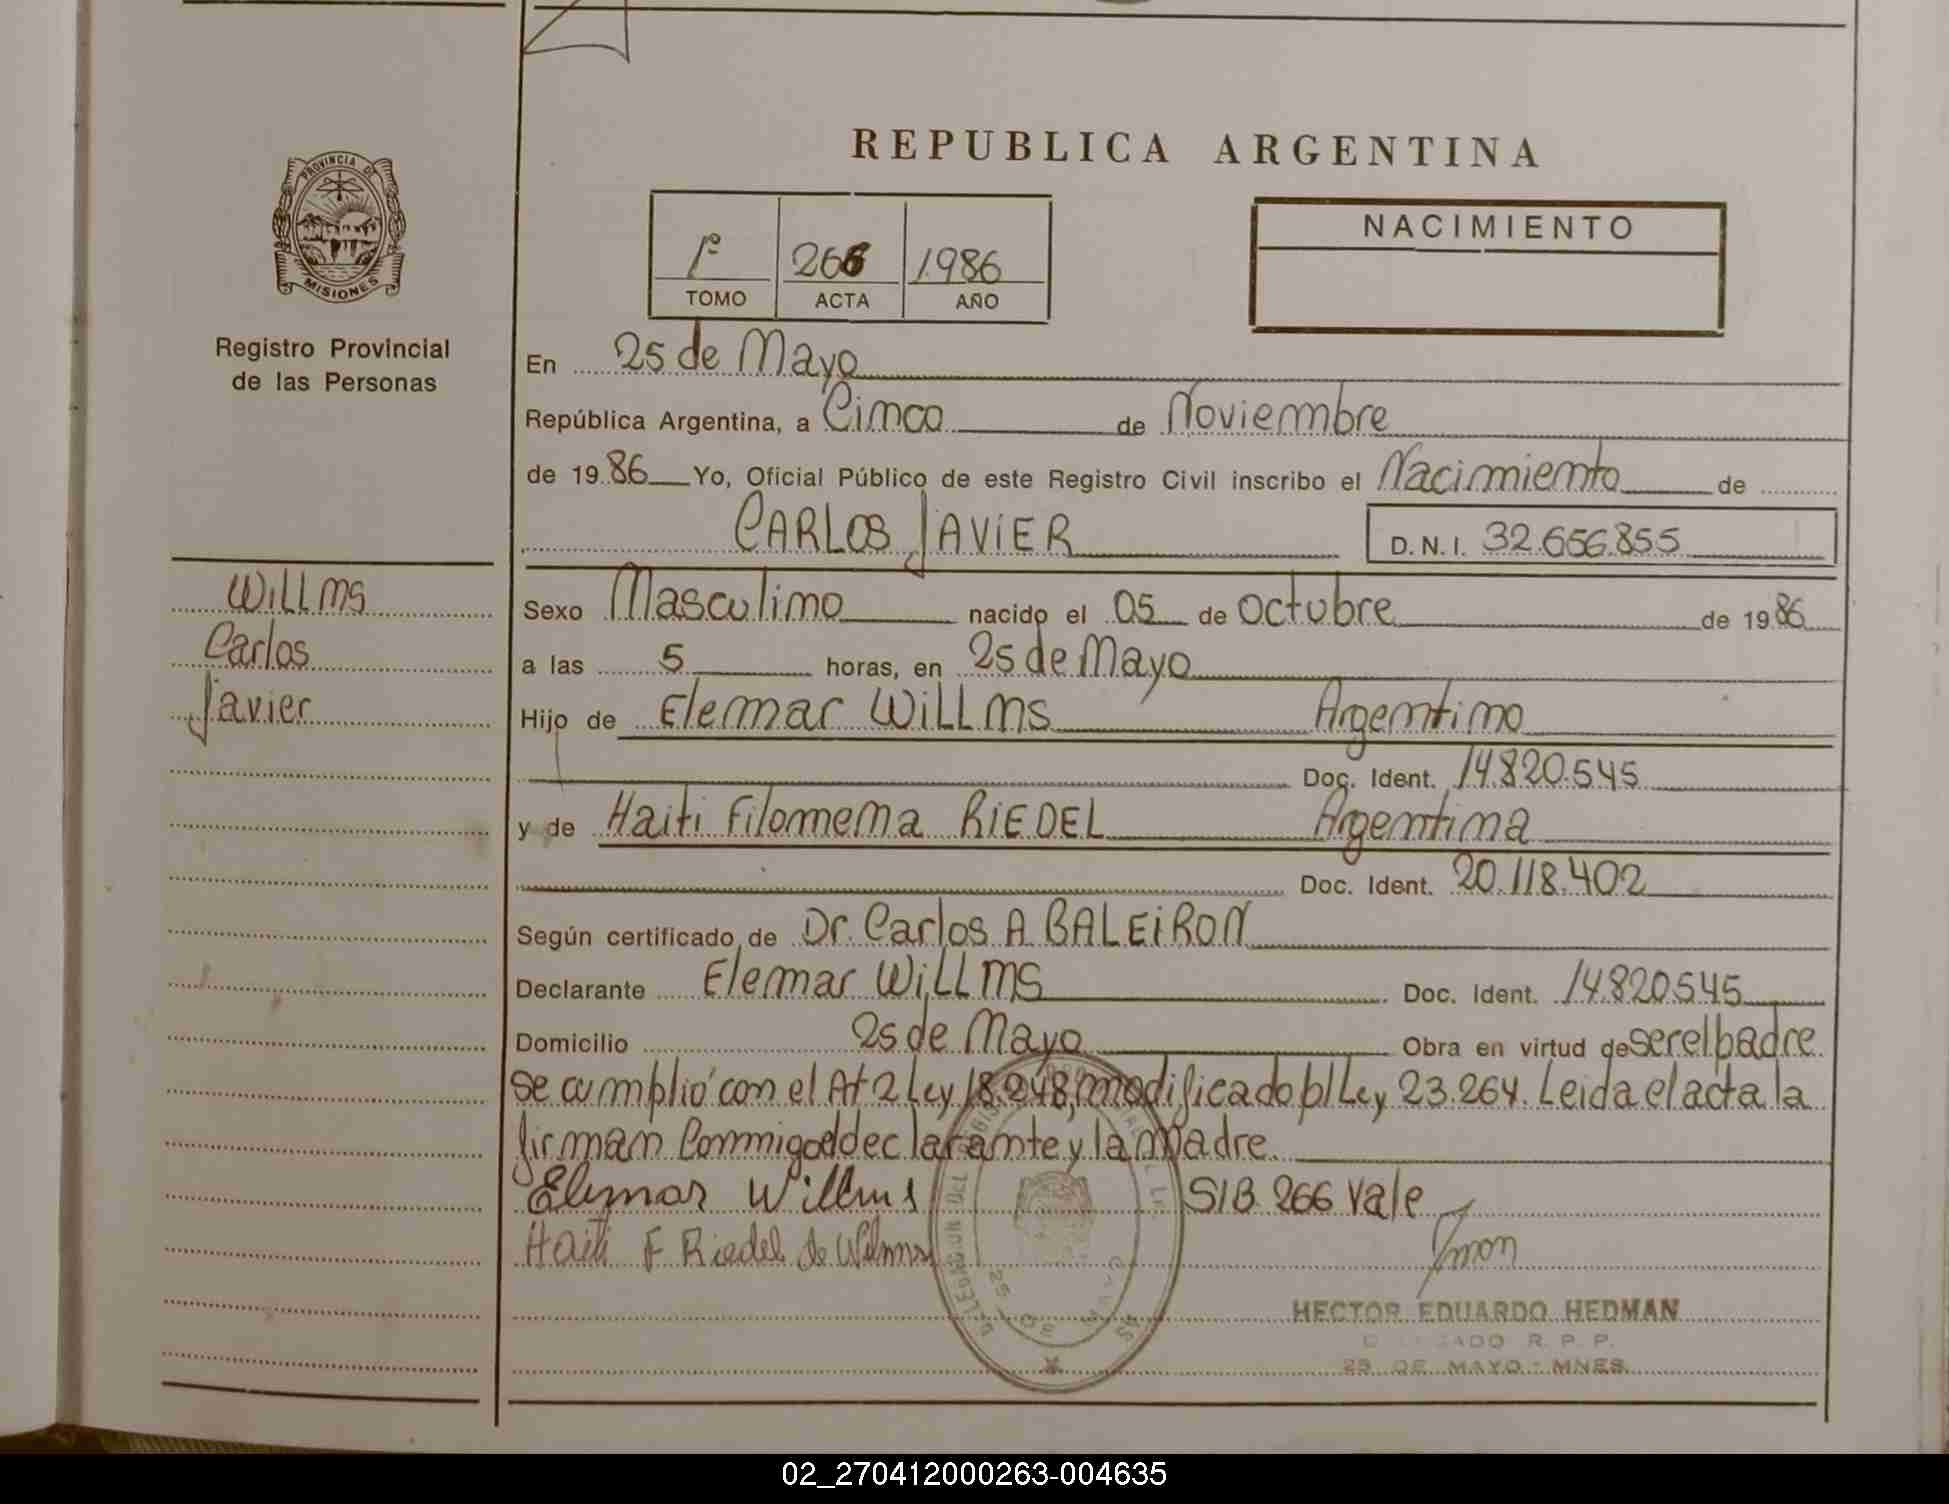 REPUBLICA ARGENTINA
PROVINCIA DE
MISIONES
Registro Provincial
de las Personas
1º 266 1986
TOMO ACTA AÑO
NACIMIENTO
En 25 de Mayo
República Argentina, a Cinco de Noviembre
de 19 86 Yo, Oficial Público de este Registro Civil inscribo el Nacimiento de
CARLOS JAVIER D.N.I. 32.656.855
Willms
Carlos
Javier
Sexo Masculino nacido el 05 de octubre de 19 86
a las 5 horas, en 25 de Mayo
Hijo de Elemar WiLLms Argentino
Doc. Ident. 14.820.545
y de Haiti Filomena RiEDEL Argentina
Doc. Ident. 20.118.402
Según certificado de Dr. Carlos A BALEiRON
Declarante Elemar WiLLms Doc. Ident. 14.820.545
Domicilio 25 de Mayo Obra en virtud de ser el padre
se cumplió con el At 2 Ley 18.248, modificado p/ Ley 23.264. Leida el acta la
firman Conmigo el declarante y la Madre.
Elymar Willms S/B. 266 Vale
Haiti F Riedel de Wilms
HECTOR EDUARDO HEDMAN
DELEGADO R. P. P.
25 DE MAYO - MNES.
25 DE MAYO
02_270412000263-004635